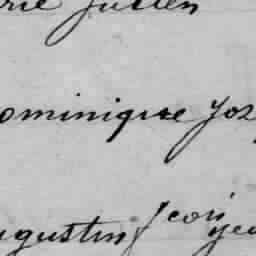 rie Julien
ominique Jos
ugustin